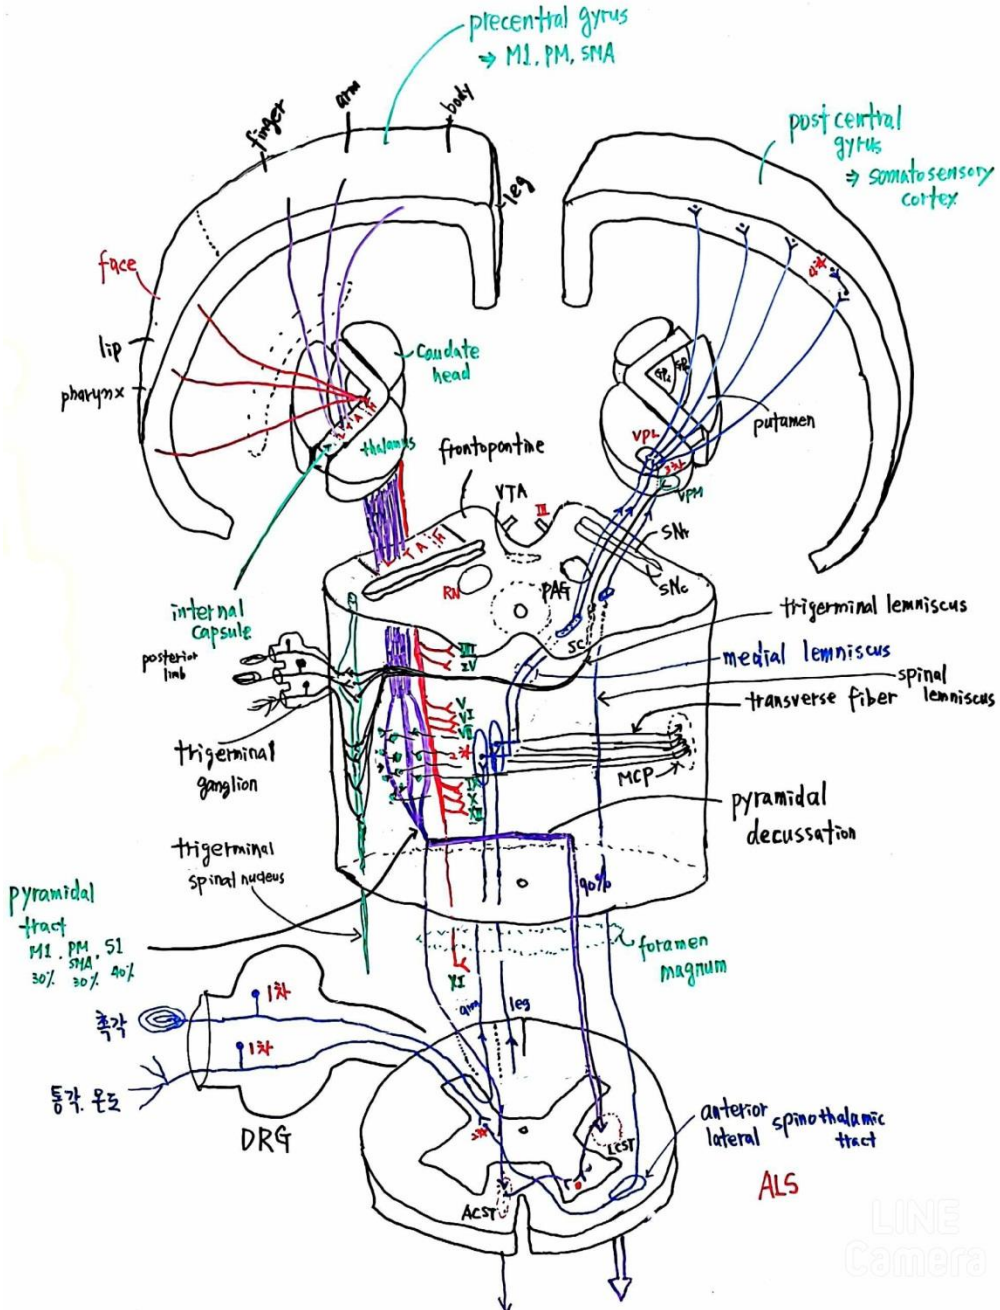 precentral gyrus
⇒ M1, PM, SMA
finger
arm
body
leg
post central
gyrus
⇒ somatosensory
cortex
face
lip
pharynx
caudate
head
thalamus
frontopontine
VTA
III
VPL
3차
VPM
putamen
SNr
SNc
F A T L
RN
PAG
SC
internal
capsule
posterior
limb
trigerminal lemniscus
medial lemniscus
spinal
lemniscus
transverse fiber
III
IV
V
VI
VII
IX
X
XII
MCP
trigerminal
ganglion
pyramidal
decussation
90%
trigerminal
spinal nucleus
pyramidal
tract
M1. PM. S1
SMA
30% 30% 40%
foramen
magnum
XI
arm
leg
촉각
1차
1차
통각. 온도
DRG
LCST
ACST
anterior
lateral
spinothalamic
tract
ALS
LINE
Camera